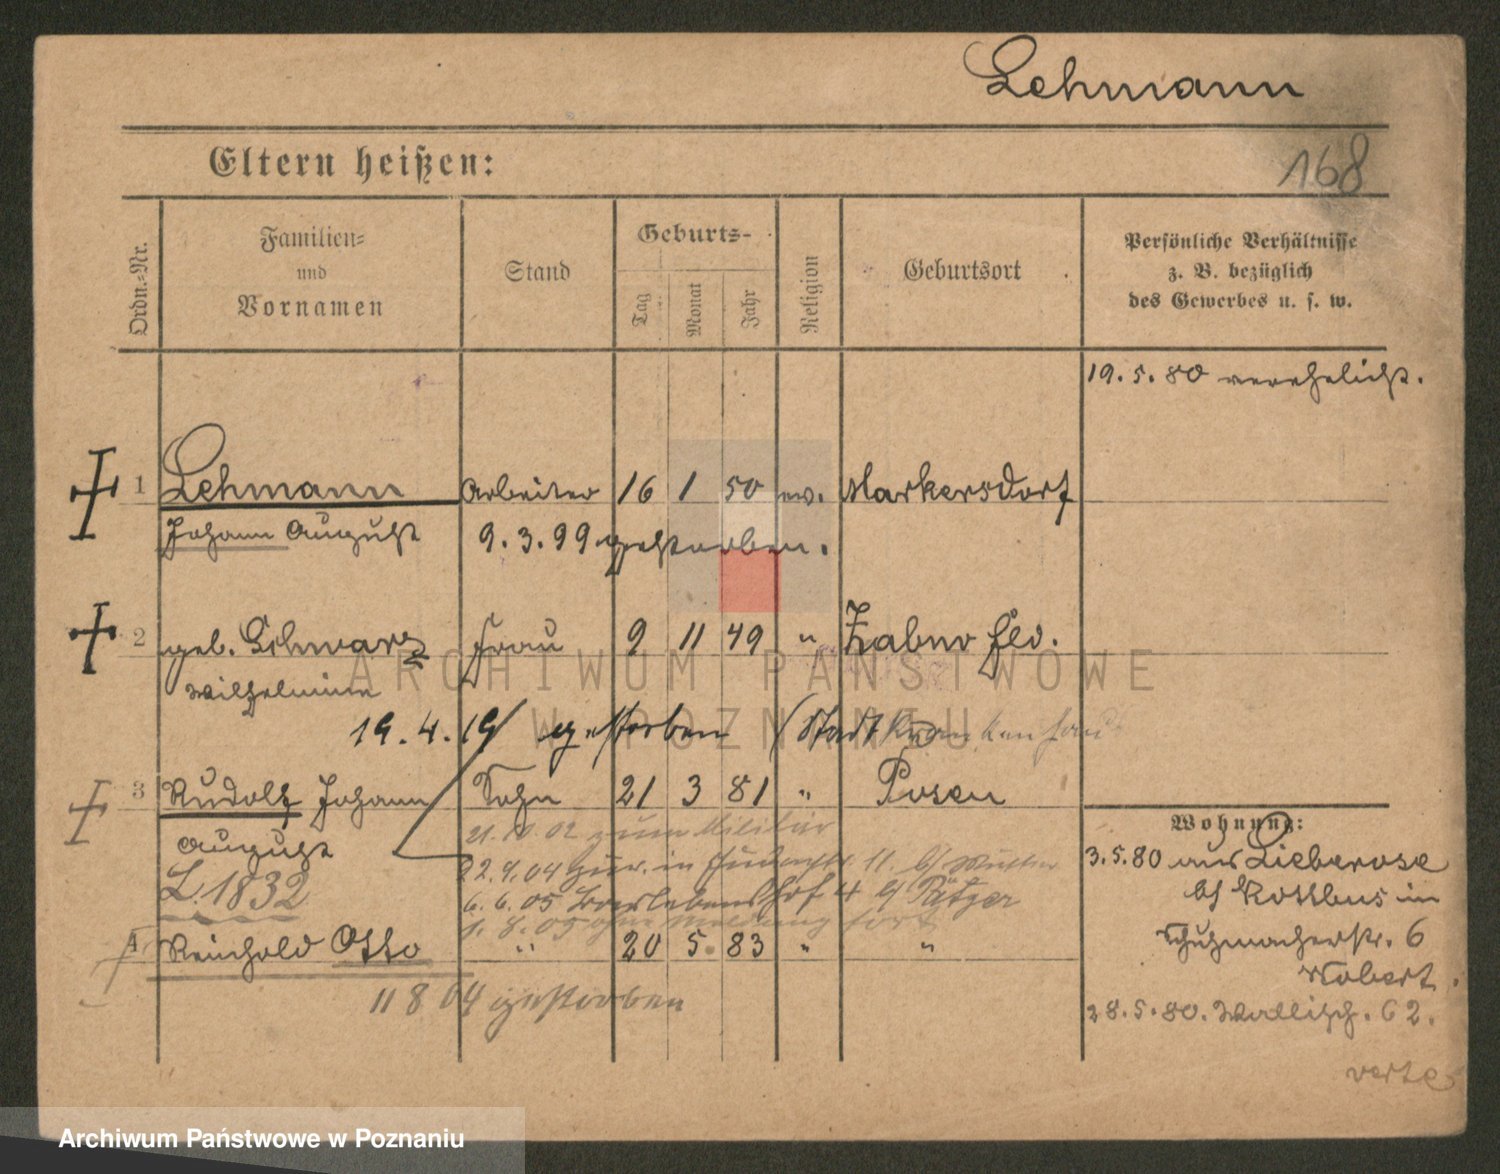 Lehmann
Eltern heißen:
168
Ordn.-Nr.
Familien-
und
Vornamen
Stand
Geburts-
Tag
Monat
Jahr
Religion
Geburtsort
Persönliche Verhältnisse
z. B. bezüglich
des Gewerbes u. s. w.
19. 5. 80 verehelicht.
1 Lehmann Arbeiter 16 1 50 ev. Markersdorf
Johann August 9. 3. 99 gestorben.
2 geb. Schwarz Frau 9 11 49 " Zabno
Wilhelmine
19. 4. 19 gestorben (Stadtkrankenhaus
3 Rudolf Johann Sohn 21 3 81 " Posen
August
L. 1832
21. 10. 02 zum Militär
22. 9. 04 zur. in 11. b/ Mutter
6. 6. 05 4 b/ Pätzer
1. 8. 05 ohne Meldung fort
4 Reinhold Otto " 20 5. 83 " "
11 8 04 gestorben
Wohnung:
3. 5. 80 aus Lieberose
b/ Kottbus in
Schuhmacherstr. 6
Nobert.
28. 5. 80. Wallisch. 62.
verte
ARCHIWUM PAŃSTWOWE
W POZNANIU
Archiwum Państwowe w Poznaniu